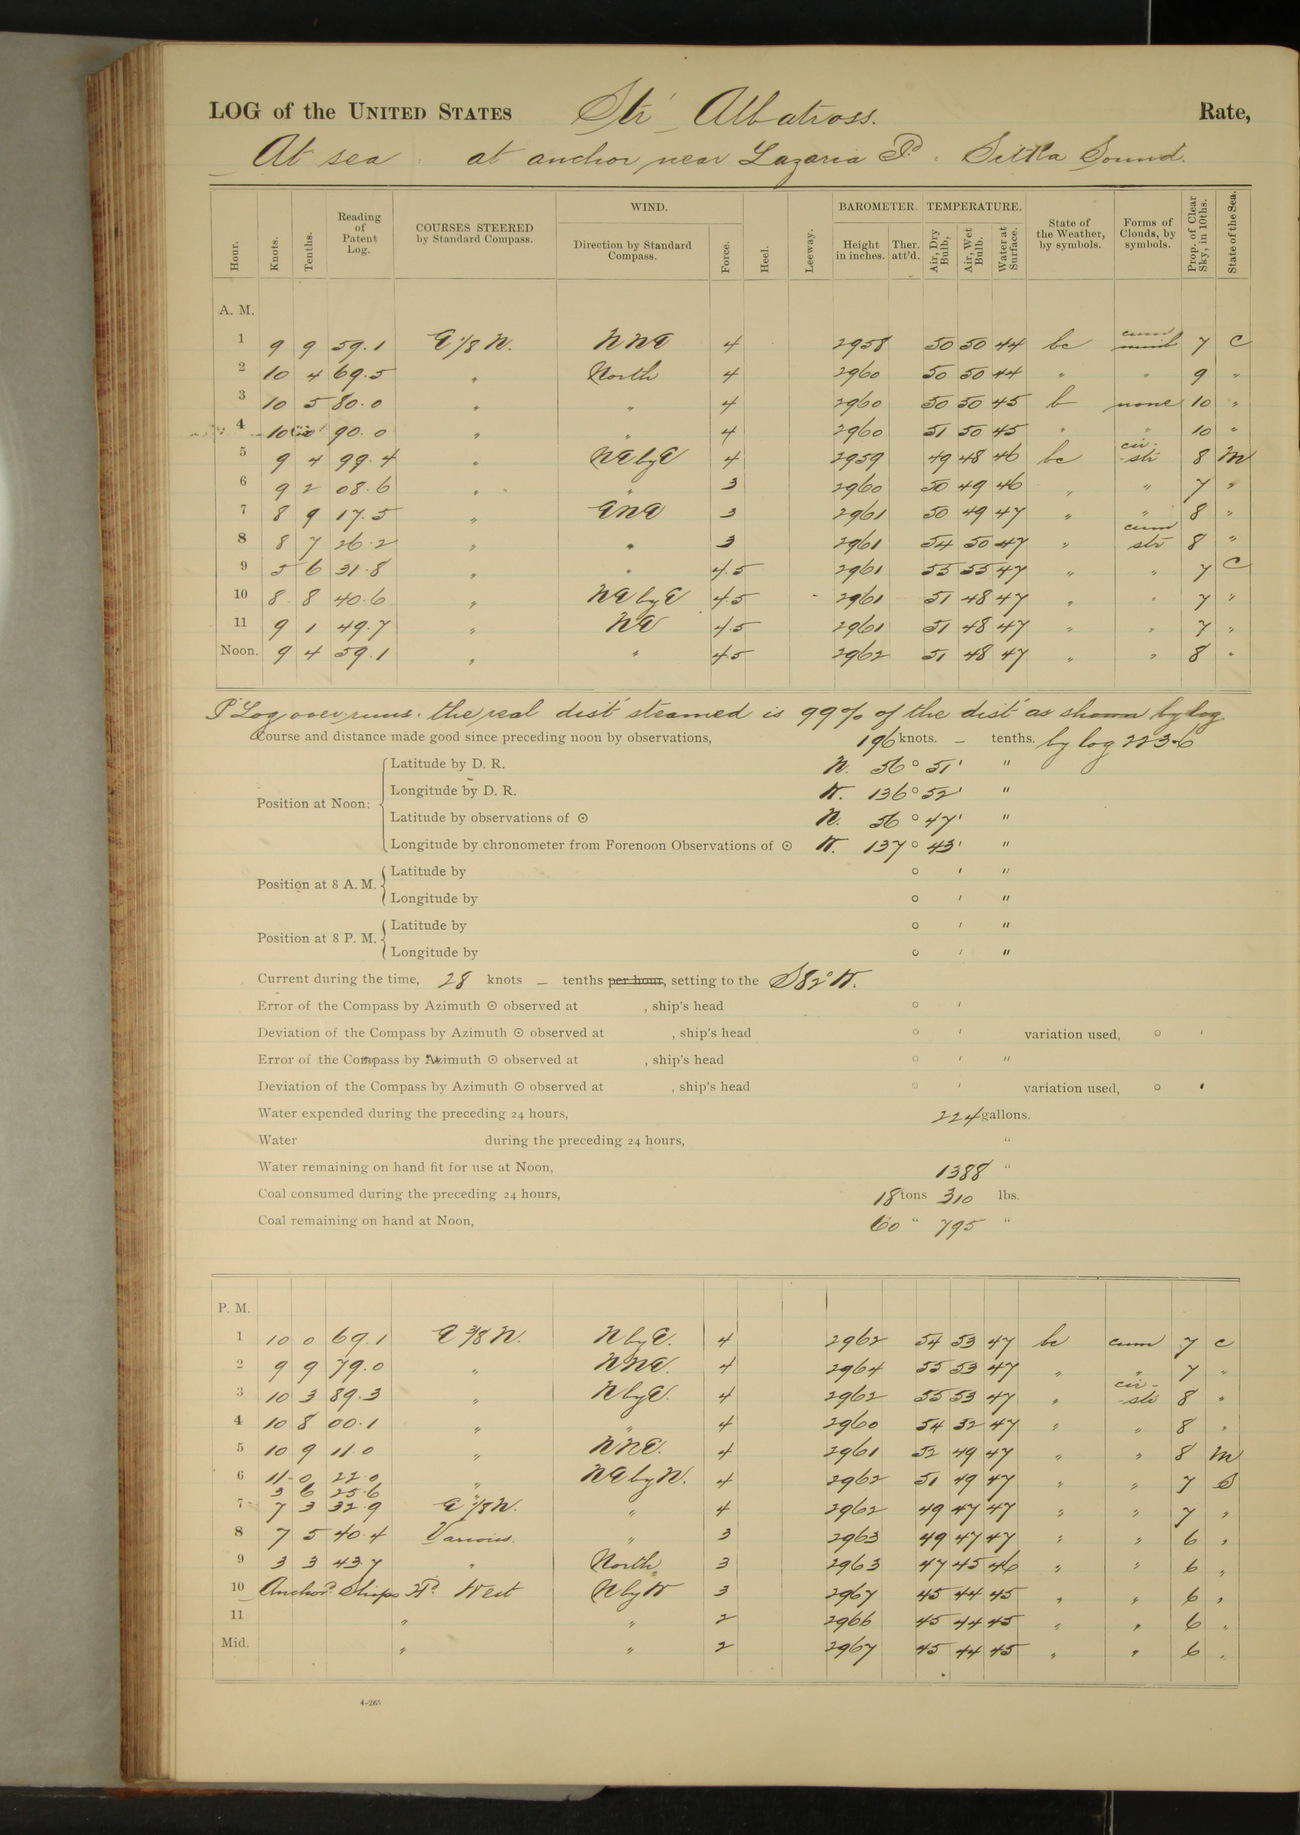 LOG of the UNITED STATES Str Albatross. Rate,
At sea at anchor near Lazaria Pt. Sitka Sound.
Hour. Knots. Tenths. Reading of Patent Log. COURSES STEERED by Standard Compass. WIND. Direction by Standard Compass. Force. Heel. Leeway. BAROMETER. Height in inches. Ther. att'd. TEMPERATURE. Air, Dry Bulb, Air, Wet Bulb. Water at Surface. State of the Weather, by symbols. Forms of Clouds, by symbols. Prop. of Clear Sky, in 10ths. State of the Sea.
A. M.
1 9 9 59.1 E 1/8 N. NNE 4 2958 50 50 44 bc cum 7 C
2 10 4 69.5 " North 4 2960 50 50 44 " " 9 "
3 10 5 80.0 " " 4 2960 50 50 45 b none 10 "
4 10 0 90.0 " " 4 2960 51 50 45 " " 10 "
5 9 4 99.4 " NE by E 4 2959 49 48 46 bc cir-str 8 M
6 9 2 08.6 " " 3 2960 50 49 46 " " 7 "
7 8 9 17.5 " ENE 3 2961 50 49 47 " " 8 "
8 8 7 26.2 " " 3 2961 54 50 47 " cum str 8 "
9 5 6 31.8 " " 4.5 2961 55 55 47 " " 7 C
10 8 8 40.6 " NE by E 4.5 2961 51 48 47 " " 7 "
11 9 1 49.7 " NE 4.5 2961 51 48 47 " " 7 "
Noon. 9 4 59.1 " " 4.5 2962 51 48 47 " " 8 "
P Log overruns. the real dist steamed is 99% of the dist as shown by log
Course and distance made good since preceding noon by observations, 196 knots. – tenths. by log 223.6
Position at Noon:
Latitude by D. R. N. 56° 51' "
Longitude by D. R. W. 136° 52' "
Latitude by observations of ☉ N. 56° 47' "
Longitude by chronometer from Forenoon Observations of ☉ W. 137° 43' "
Position at 8 A. M.
Latitude by ° ' "
Longitude by ° ' "
Position at 8 P. M.
Latitude by ° ' "
Longitude by ° ' "
Current during the time, 28 knots – tenths per hour, setting to the S82°W.
Error of the Compass by Azimuth ☉ observed at , ship's head ° '
Deviation of the Compass by Azimuth ☉ observed at , ship's head ° ' variation used, ° '
Error of the Compass by Azimuth ☉ observed at , ship's head ° ' "
Deviation of the Compass by Azimuth ☉ observed at , ship's head ° ' variation used, ° '
Water expended during the preceding 24 hours, 224 gallons.
Water during the preceding 24 hours, "
Water remaining on hand fit for use at Noon, 1388 "
Coal consumed during the preceding 24 hours, 18 tons 310 lbs.
Coal remaining on hand at Noon, 60 " 795 "
P. M.
1 10 0 69.1 E 3/8 N. N by E. 4 2962 54 53 47 bc cum 7 C
2 9 9 79.0 " NNE. 4 2964 55 53 47 " " 7 "
3 10 3 89.3 " N by E. 4 2962 55 53 47 " cir-str 8 "
4 10 8 00.1 " " 4 2960 54 52 47 " " 8 "
5 10 9 11.0 " NNE. 4 2961 52 49 47 " " 8 M
6 11 0 22.0 " NE by N. 4 2962 51 49 47 " " 7 S
3 6 25.6 "
7 7 3 32.9 E 1/8 N. " 4 2962 49 47 47 " " 7 "
8 7 5 40.4 Various. " 3 2963 49 47 47 " " 6 "
9 3 3 43.7 " North 3 2963 47 45 46 " " 6 "
10 Anchord. Ships Hd. West N by W 3 2967 45 44 45 " " 6 "
11 " " 2 2966 45 44 45 " " 6 "
Mid. " " 2 2967 45 44 45 " " 6 "
4-265